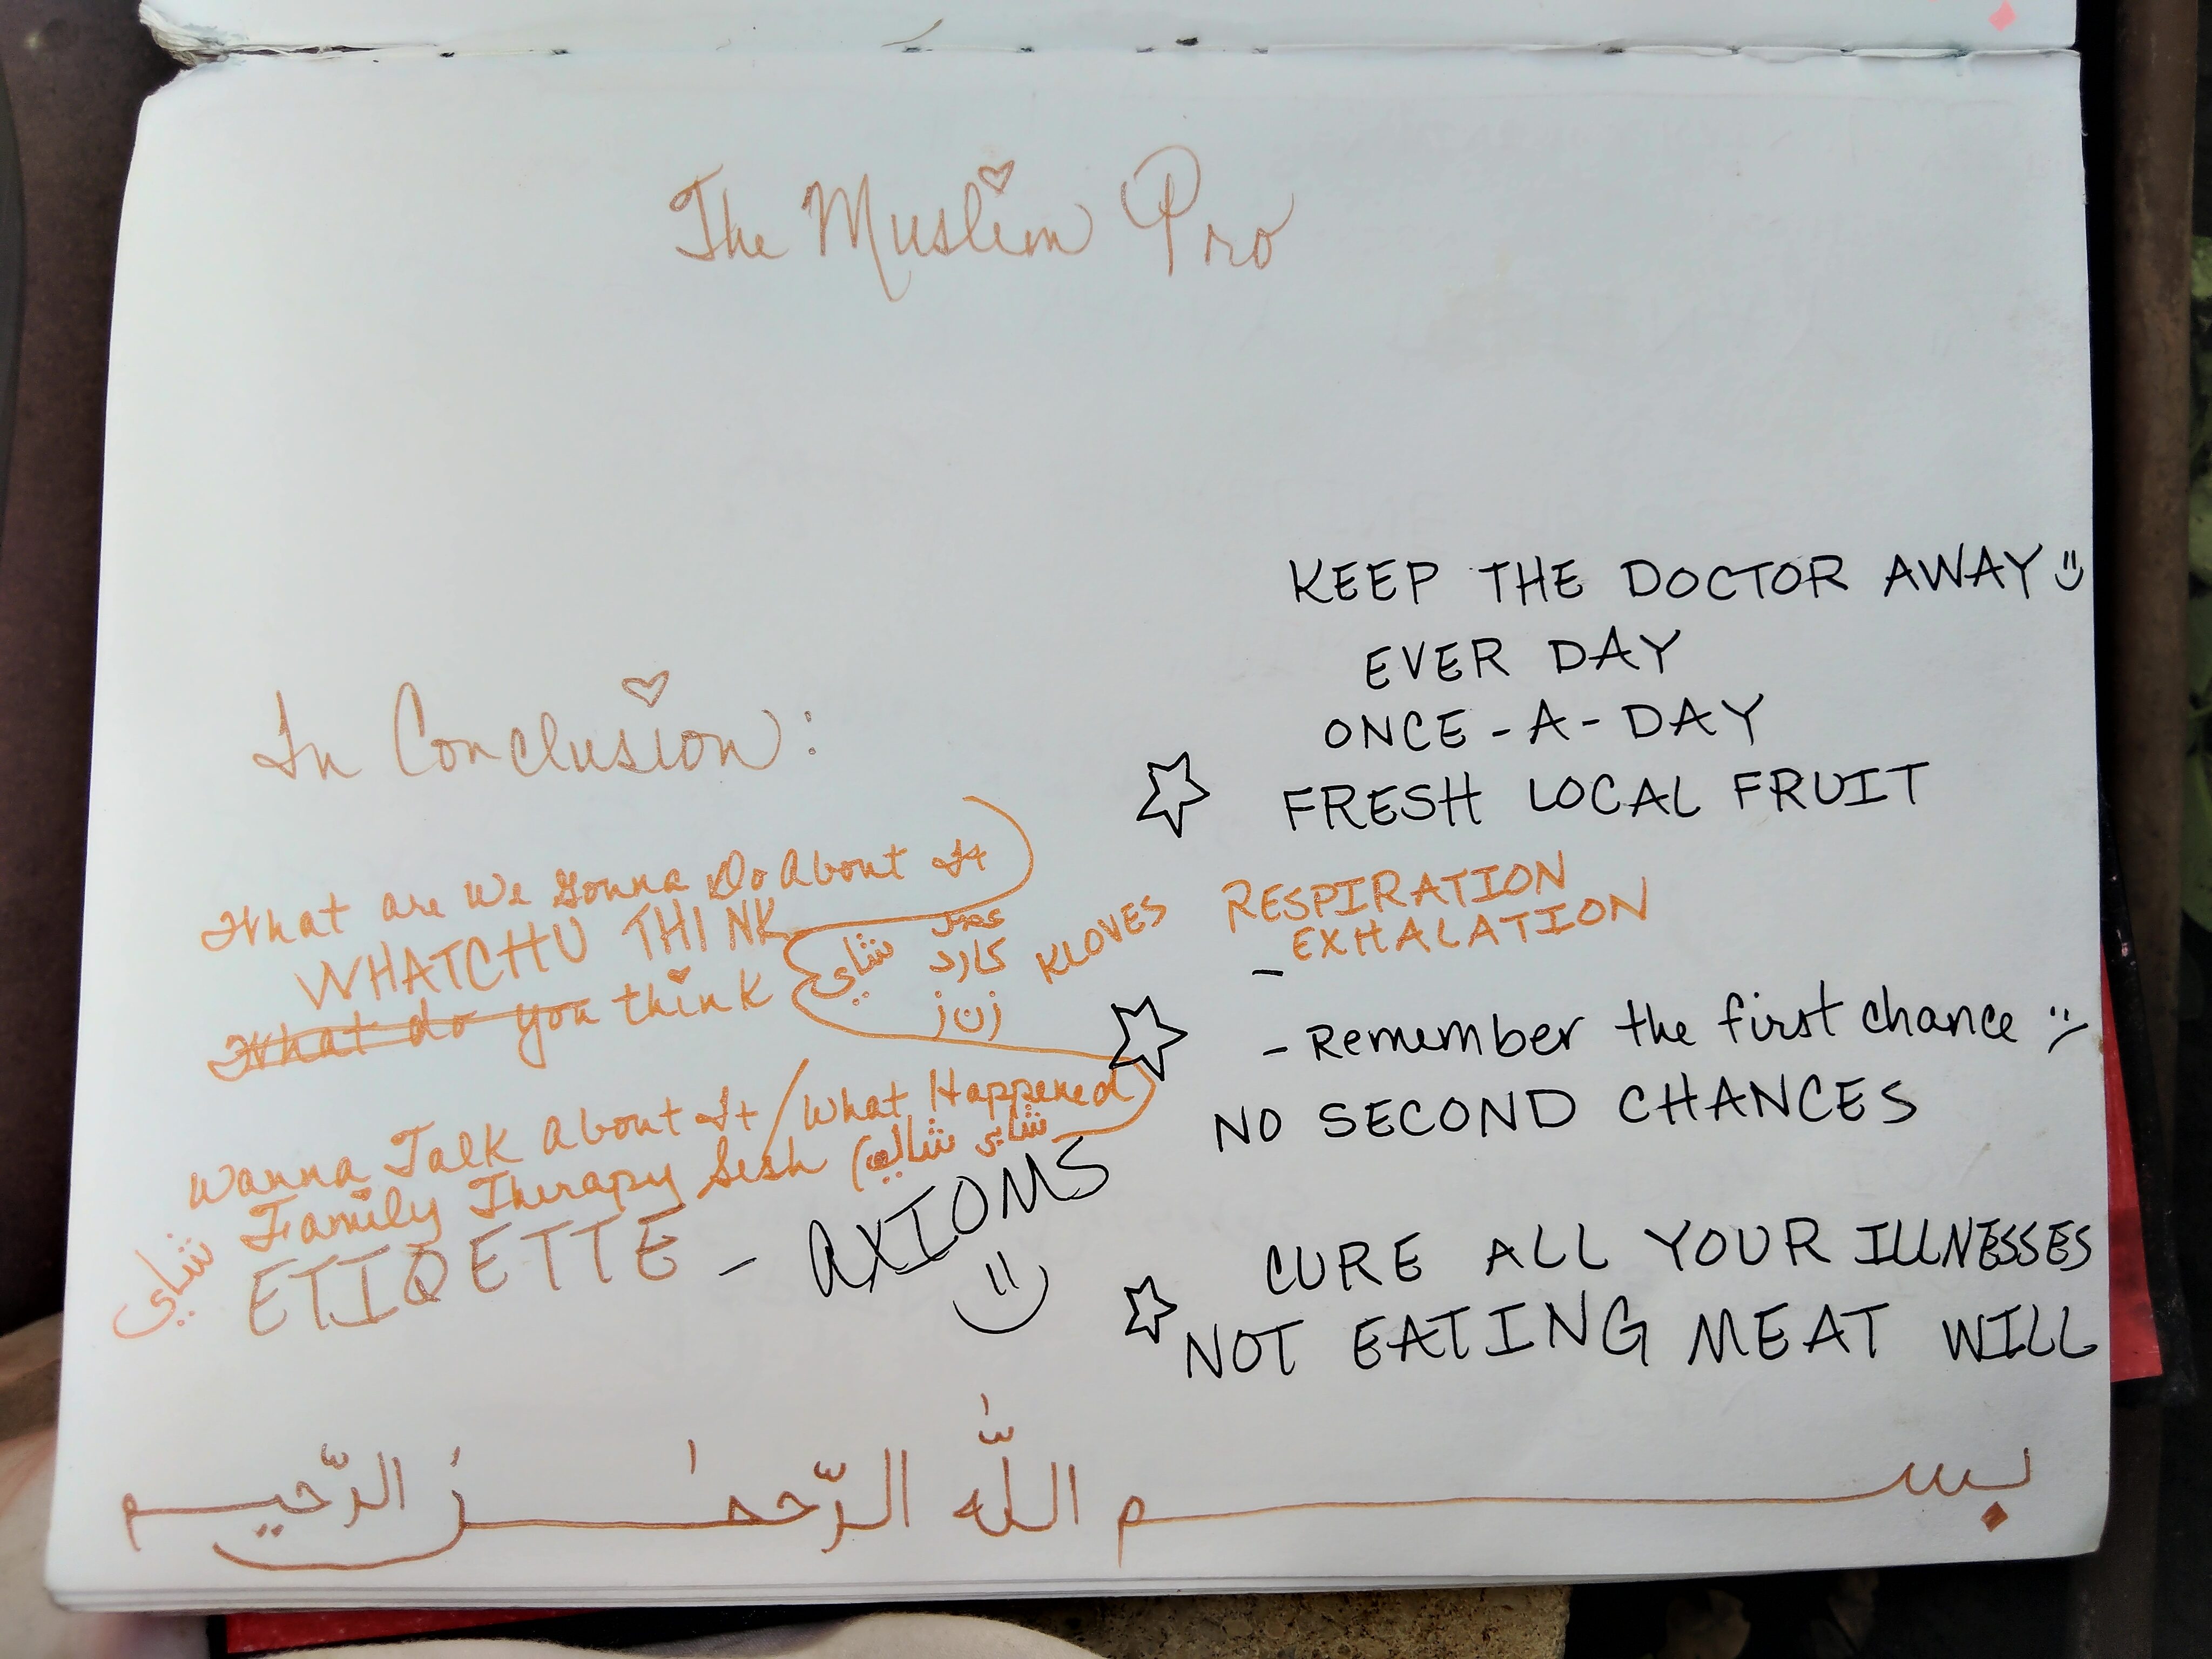 The Muslim Pro
In Conclusion:
What are We Gonna Do About It
WHATCHU THINK
What do you think
شاي
كارد
زنز
KLOVES
Wanna Talk About It / What Happened
Family Therapy Sesh (شاي شاي
شاي
ETIQETTE - AXIOMS
KEEP THE DOCTOR AWAY
EVER DAY
ONCE-A-DAY
FRESH LOCAL FRUIT
RESPIRATION
- EXHALATION
- Remember the first chance
NO SECOND CHANCES
CURE ALL YOUR ILLNESSES
NOT EATING MEAT WILL
بســـم اللّٰه الرّحمٰـــن الرّحيـــم